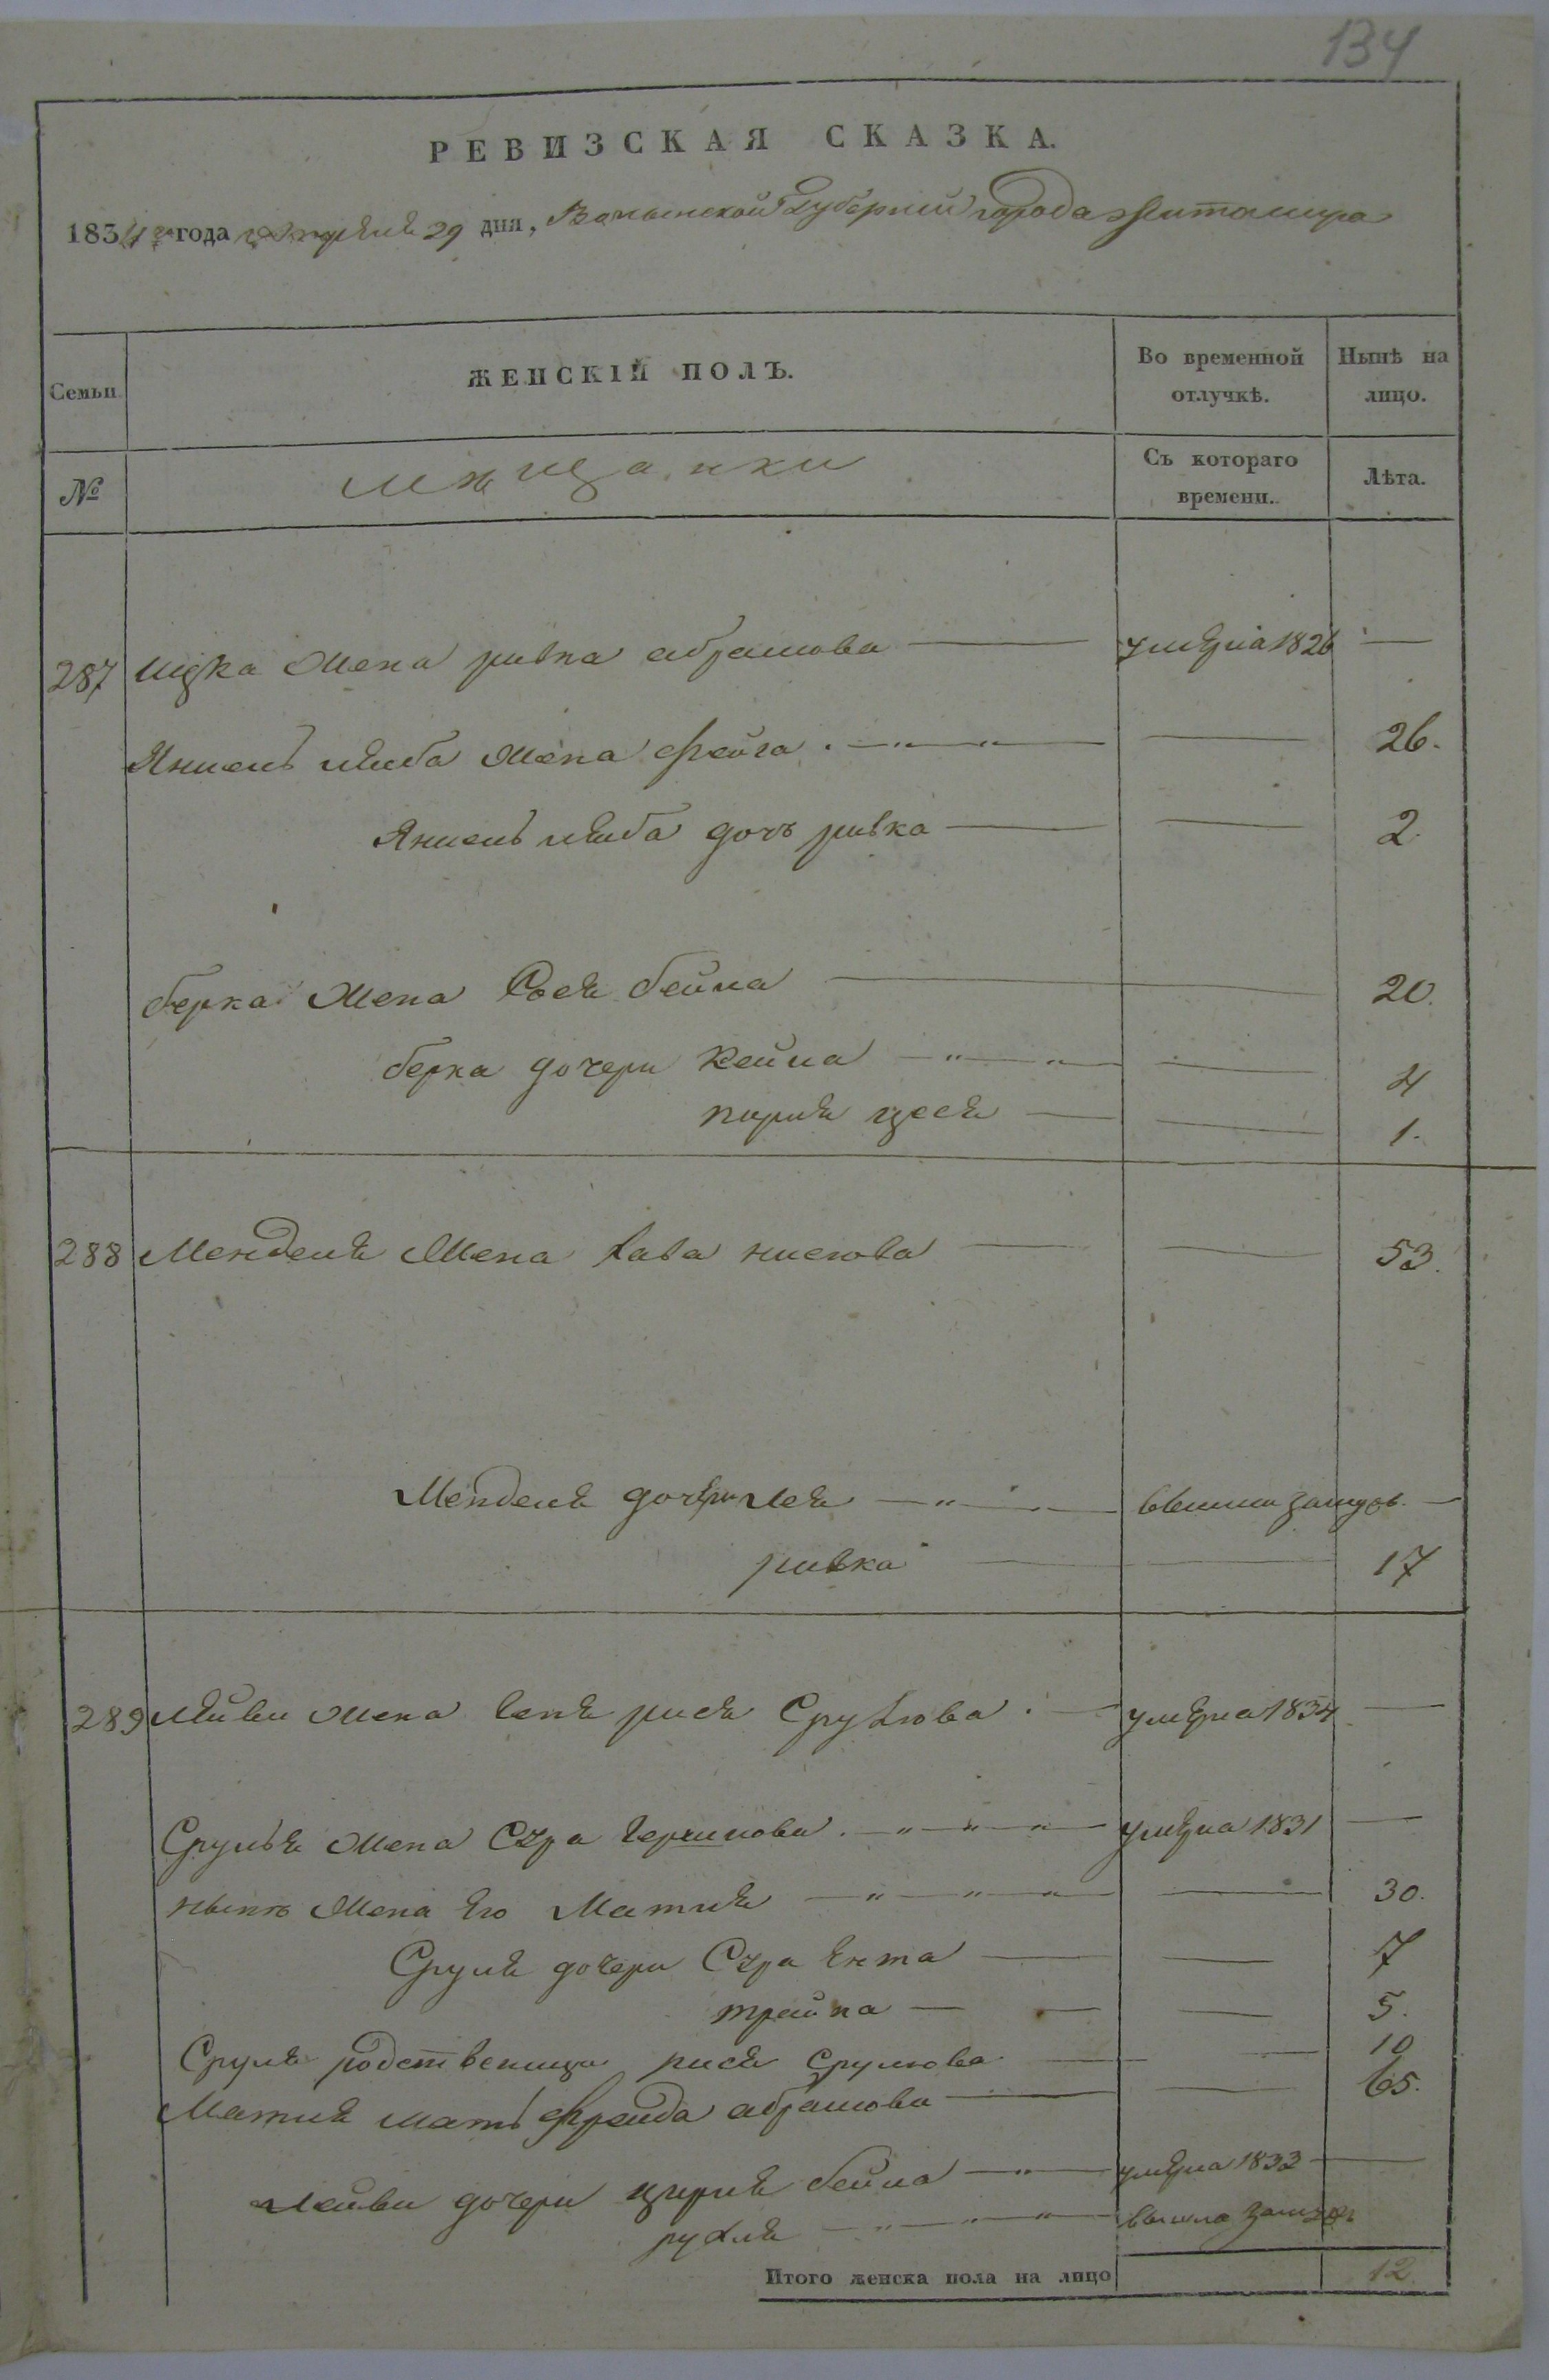 134
РЕВИЗСКАЯ СКАЗКА.
1834 года апреля 29 дня, Волынской Губернии города Житомира
Семьи. ЖЕНСКІЙ ПОЛЪ. Во временной отлучкѣ. Нынѣ на лицо.
№ мѣщанки Съ котораго времени. Лѣта.
287 Ицка жена ривка абрамова — умерла 1826 —
Янкель лейба жена фейга — — 26.
Янкель лейба дочь ривка — — 2.
берка жена Сося бейла — 20.
берка дочери Хейла — — 4
перля цеся — — 1.
288 Менделя жена хава — — 53.
Менделя дочери лея — вышла замуж. —
ривка — — 17
289 Лейви жена рися Срулова — умерла 1834 —
Сруля жена Сура — умерла 1831 —
нынѣ жена его Матля — — 30.
Сруля дочери Сура Ента — — 7
трайна — — 5.
Сруля родственица рися срулова — — 10
Матля мать фрейда абрамова — — 65.
Лейви дочери цирля бейла — умерла 1833 —
рухля — вышла замуж
Итого женска пола на лицо 12.